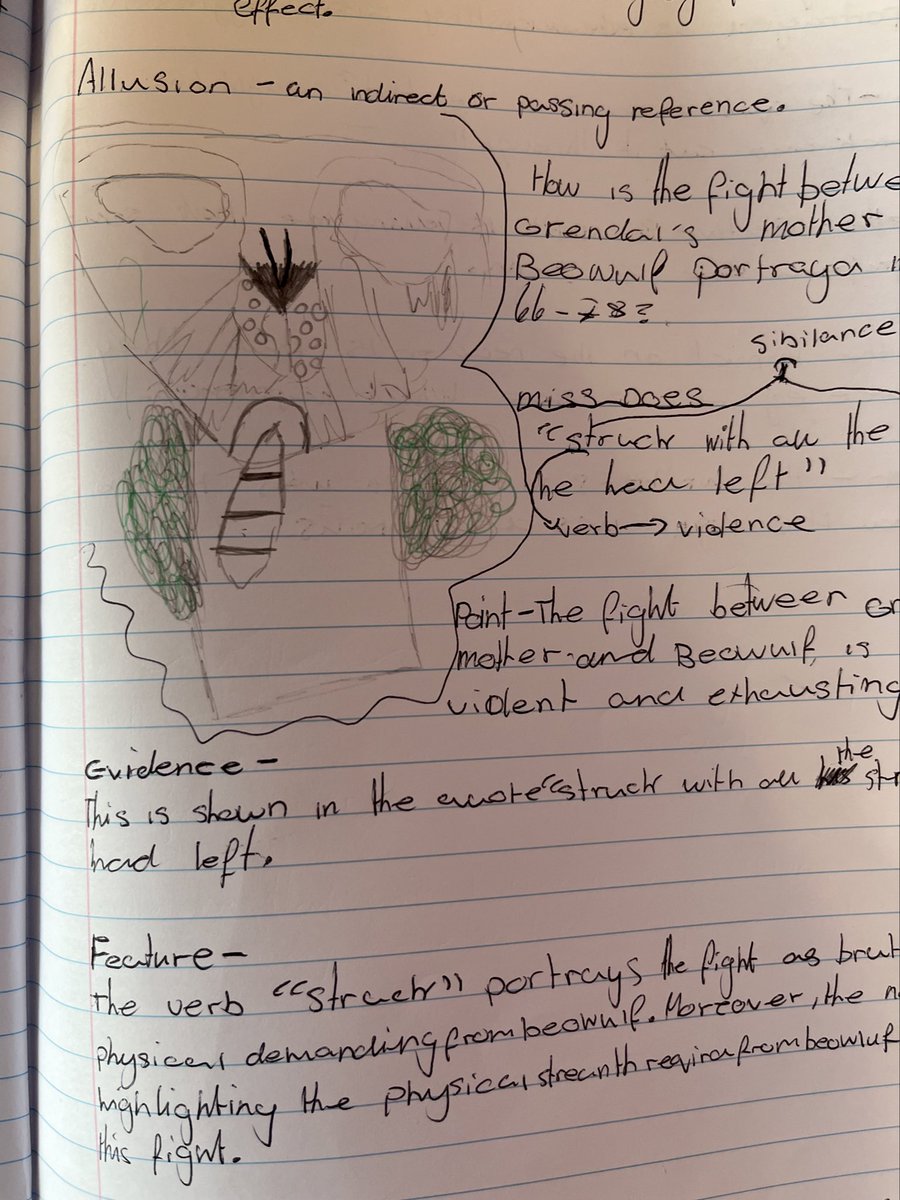 effect.
Allusion - an indirect or passing reference.
How is the fight betwe
Grendal's mother
Beowulf portraya
66-78?
sibilance
miss Does
"struck with all the
he had left"
verb → violence
Point - The fight between Gr
mother and Beowulf is
violent and exhausting
Evidence -
This is shown in the quote "struck with all the str
had left.
Feature -
The verb "struck" portrays the fight as brut
physical demanding from beowulf. Moreover, the n
highlighting the physical streanth require from beowluf
this fight.